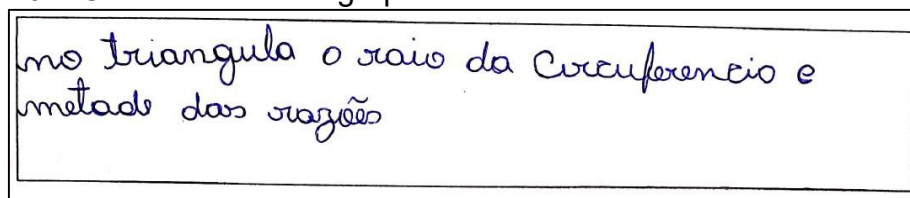 no triangula o raio da Circuferencio e
metade das razões